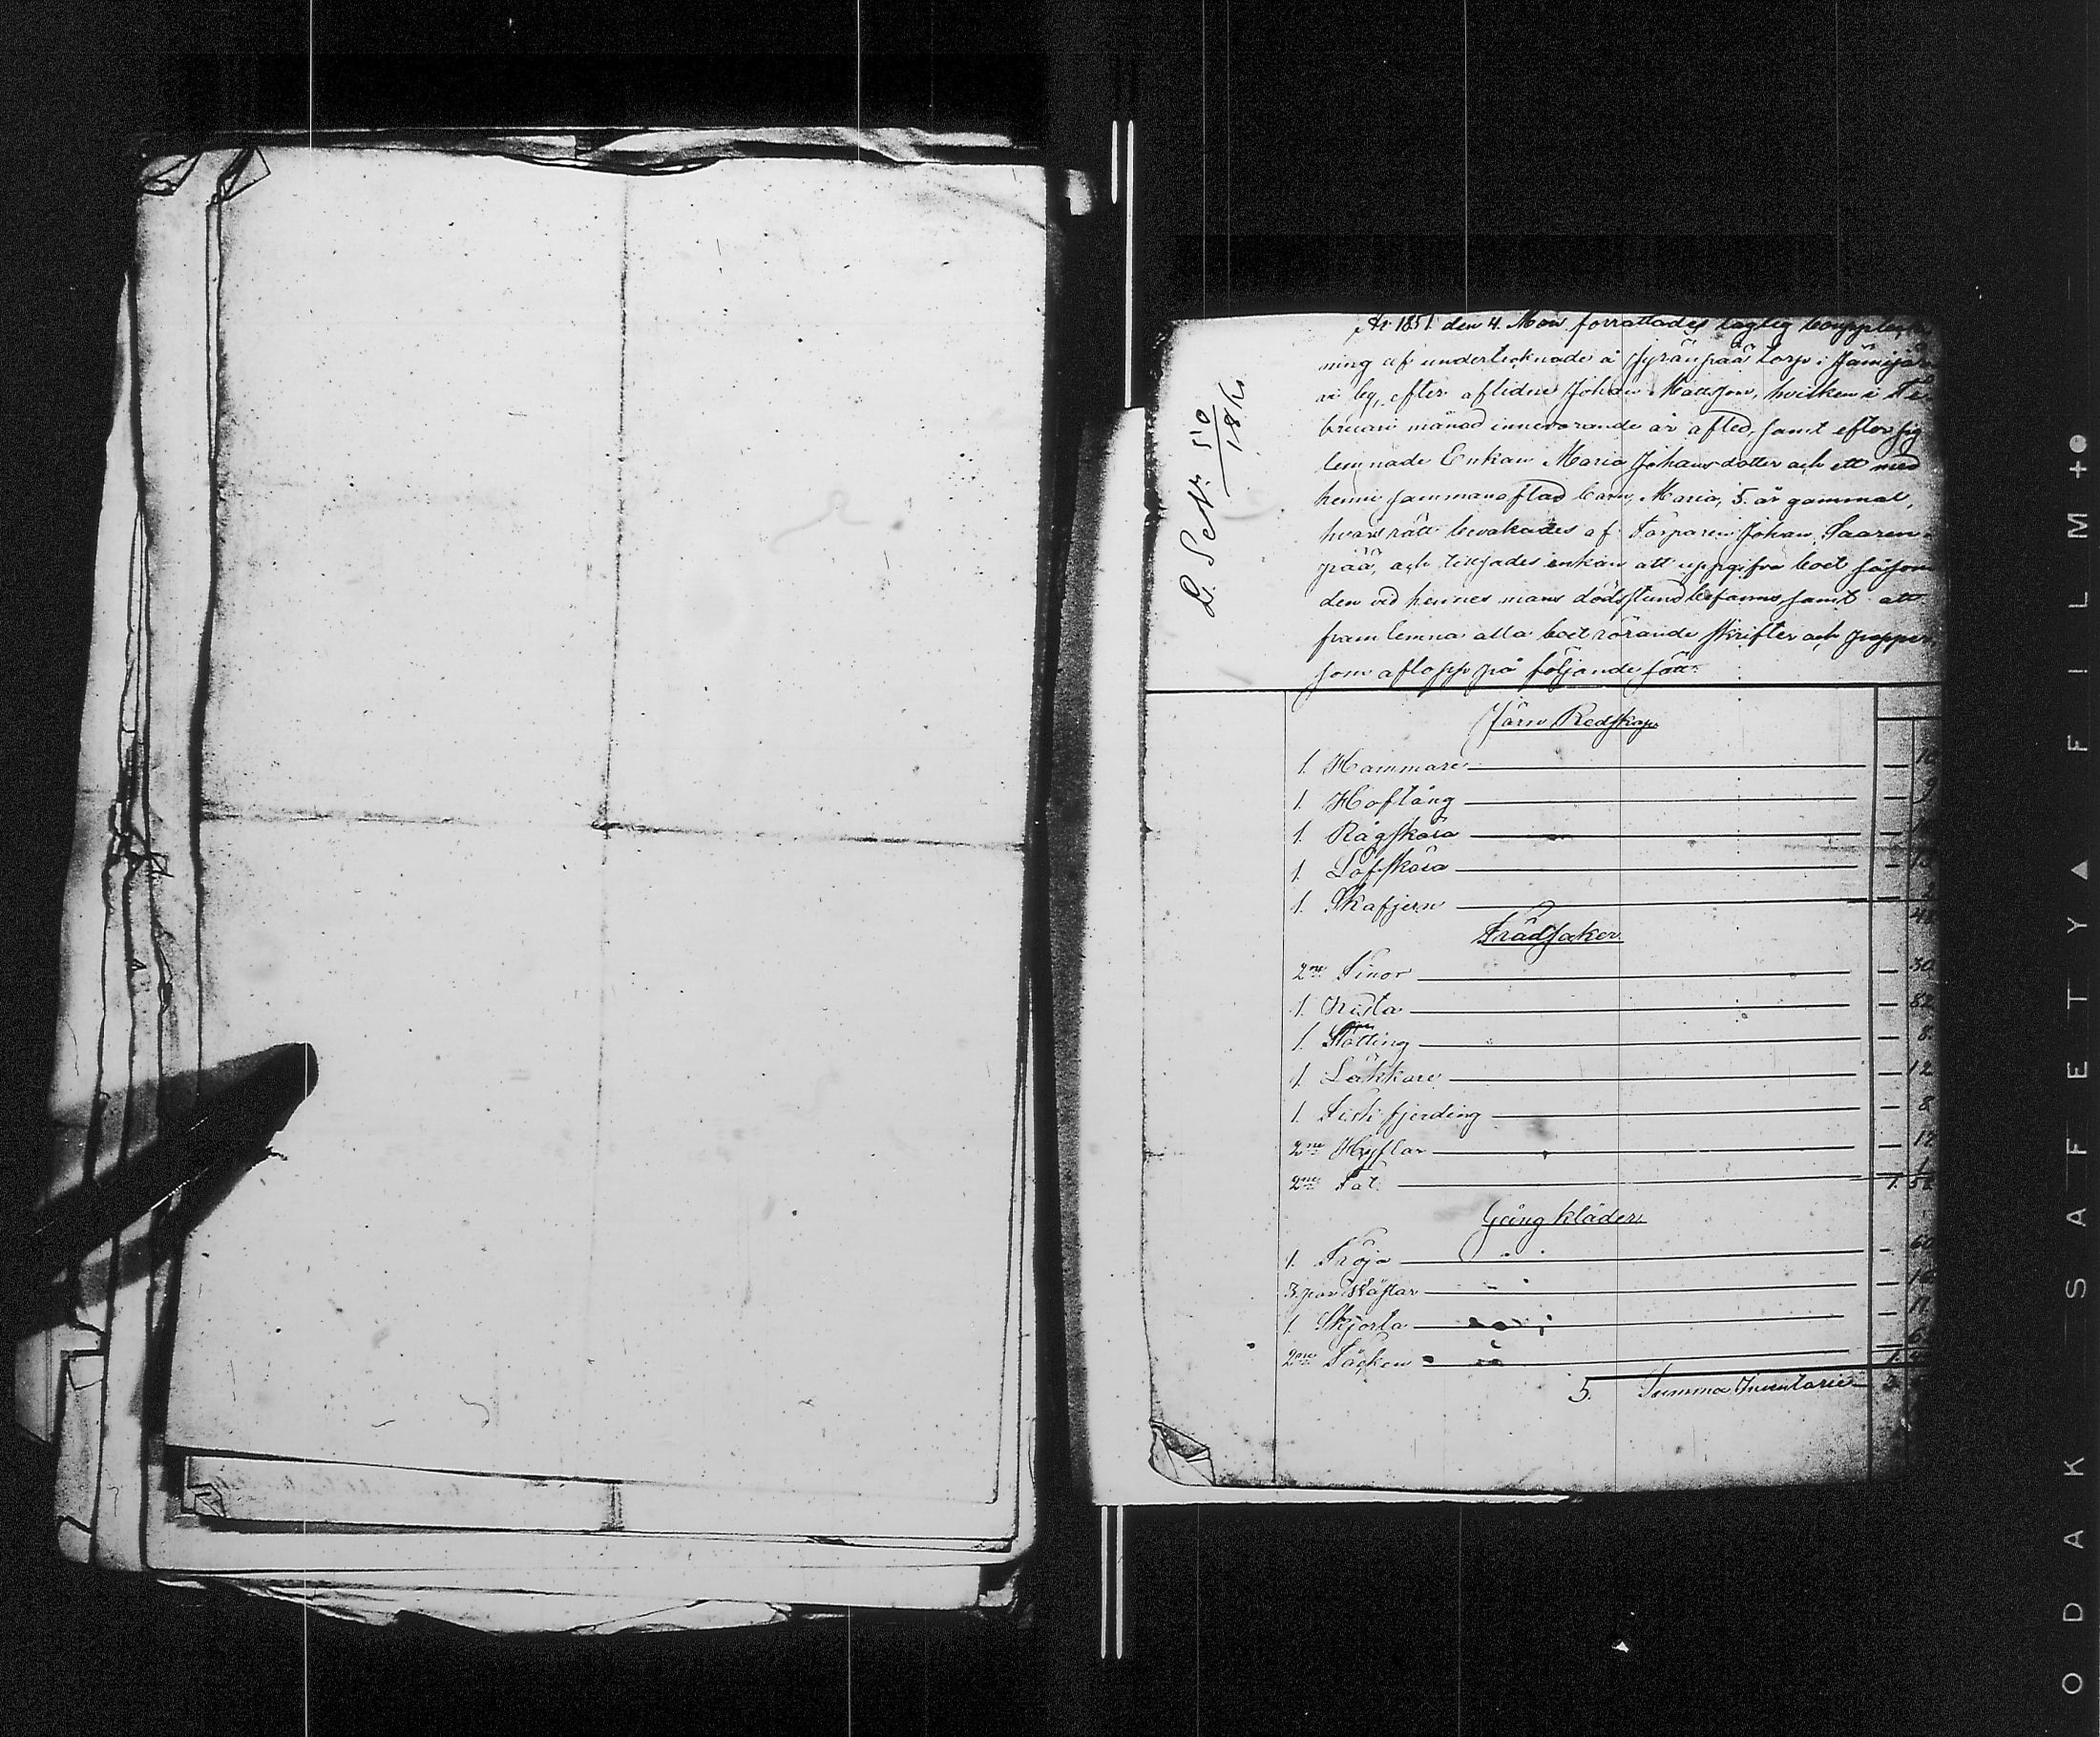 År 1851 den 4. Mars förrättades laglig bouppteck-
ning af undertecknade å Jyränpää torp i Jämijär-
vi by, efter aflidne Johan Mattsson, hvilken i Fe-
bruari månad innevarande år afled, samt efter sig
lemnade Enkan Maria Johansdotter och ett med
henne sammanaflad barn, Maria, 5. år gammal,
hvars rätt bevakades af Torparen Johan Saaren-
pää, och tillsades enkan att uppgifva boet såsom
den vid hennes mans dödsstund befanns samt att
framlemna alla boet rörande skrifter och papper
som aflopp på följande sätt.
L. S. N: 50
Järn Redskap
1. Hammare — 10
1. Hoftång — 9
1. Rågskära —
1. Löfskära —
1. Skafjern —
Trädsaker
2ne Tinor — 30
1. Kista — 82
1. Kätting — 8
1. Läkkare — 12
1. Fisk fjerding — 8
2ne Hyflar — 12
2ne Fat — 1. 52
Gång kläder
1. Tröja — 60
3. par Väster —
1. Skjorta —
2ne Täcken —
5. Summa Inventarie
ODAK SAFETY ▲ FILM +●